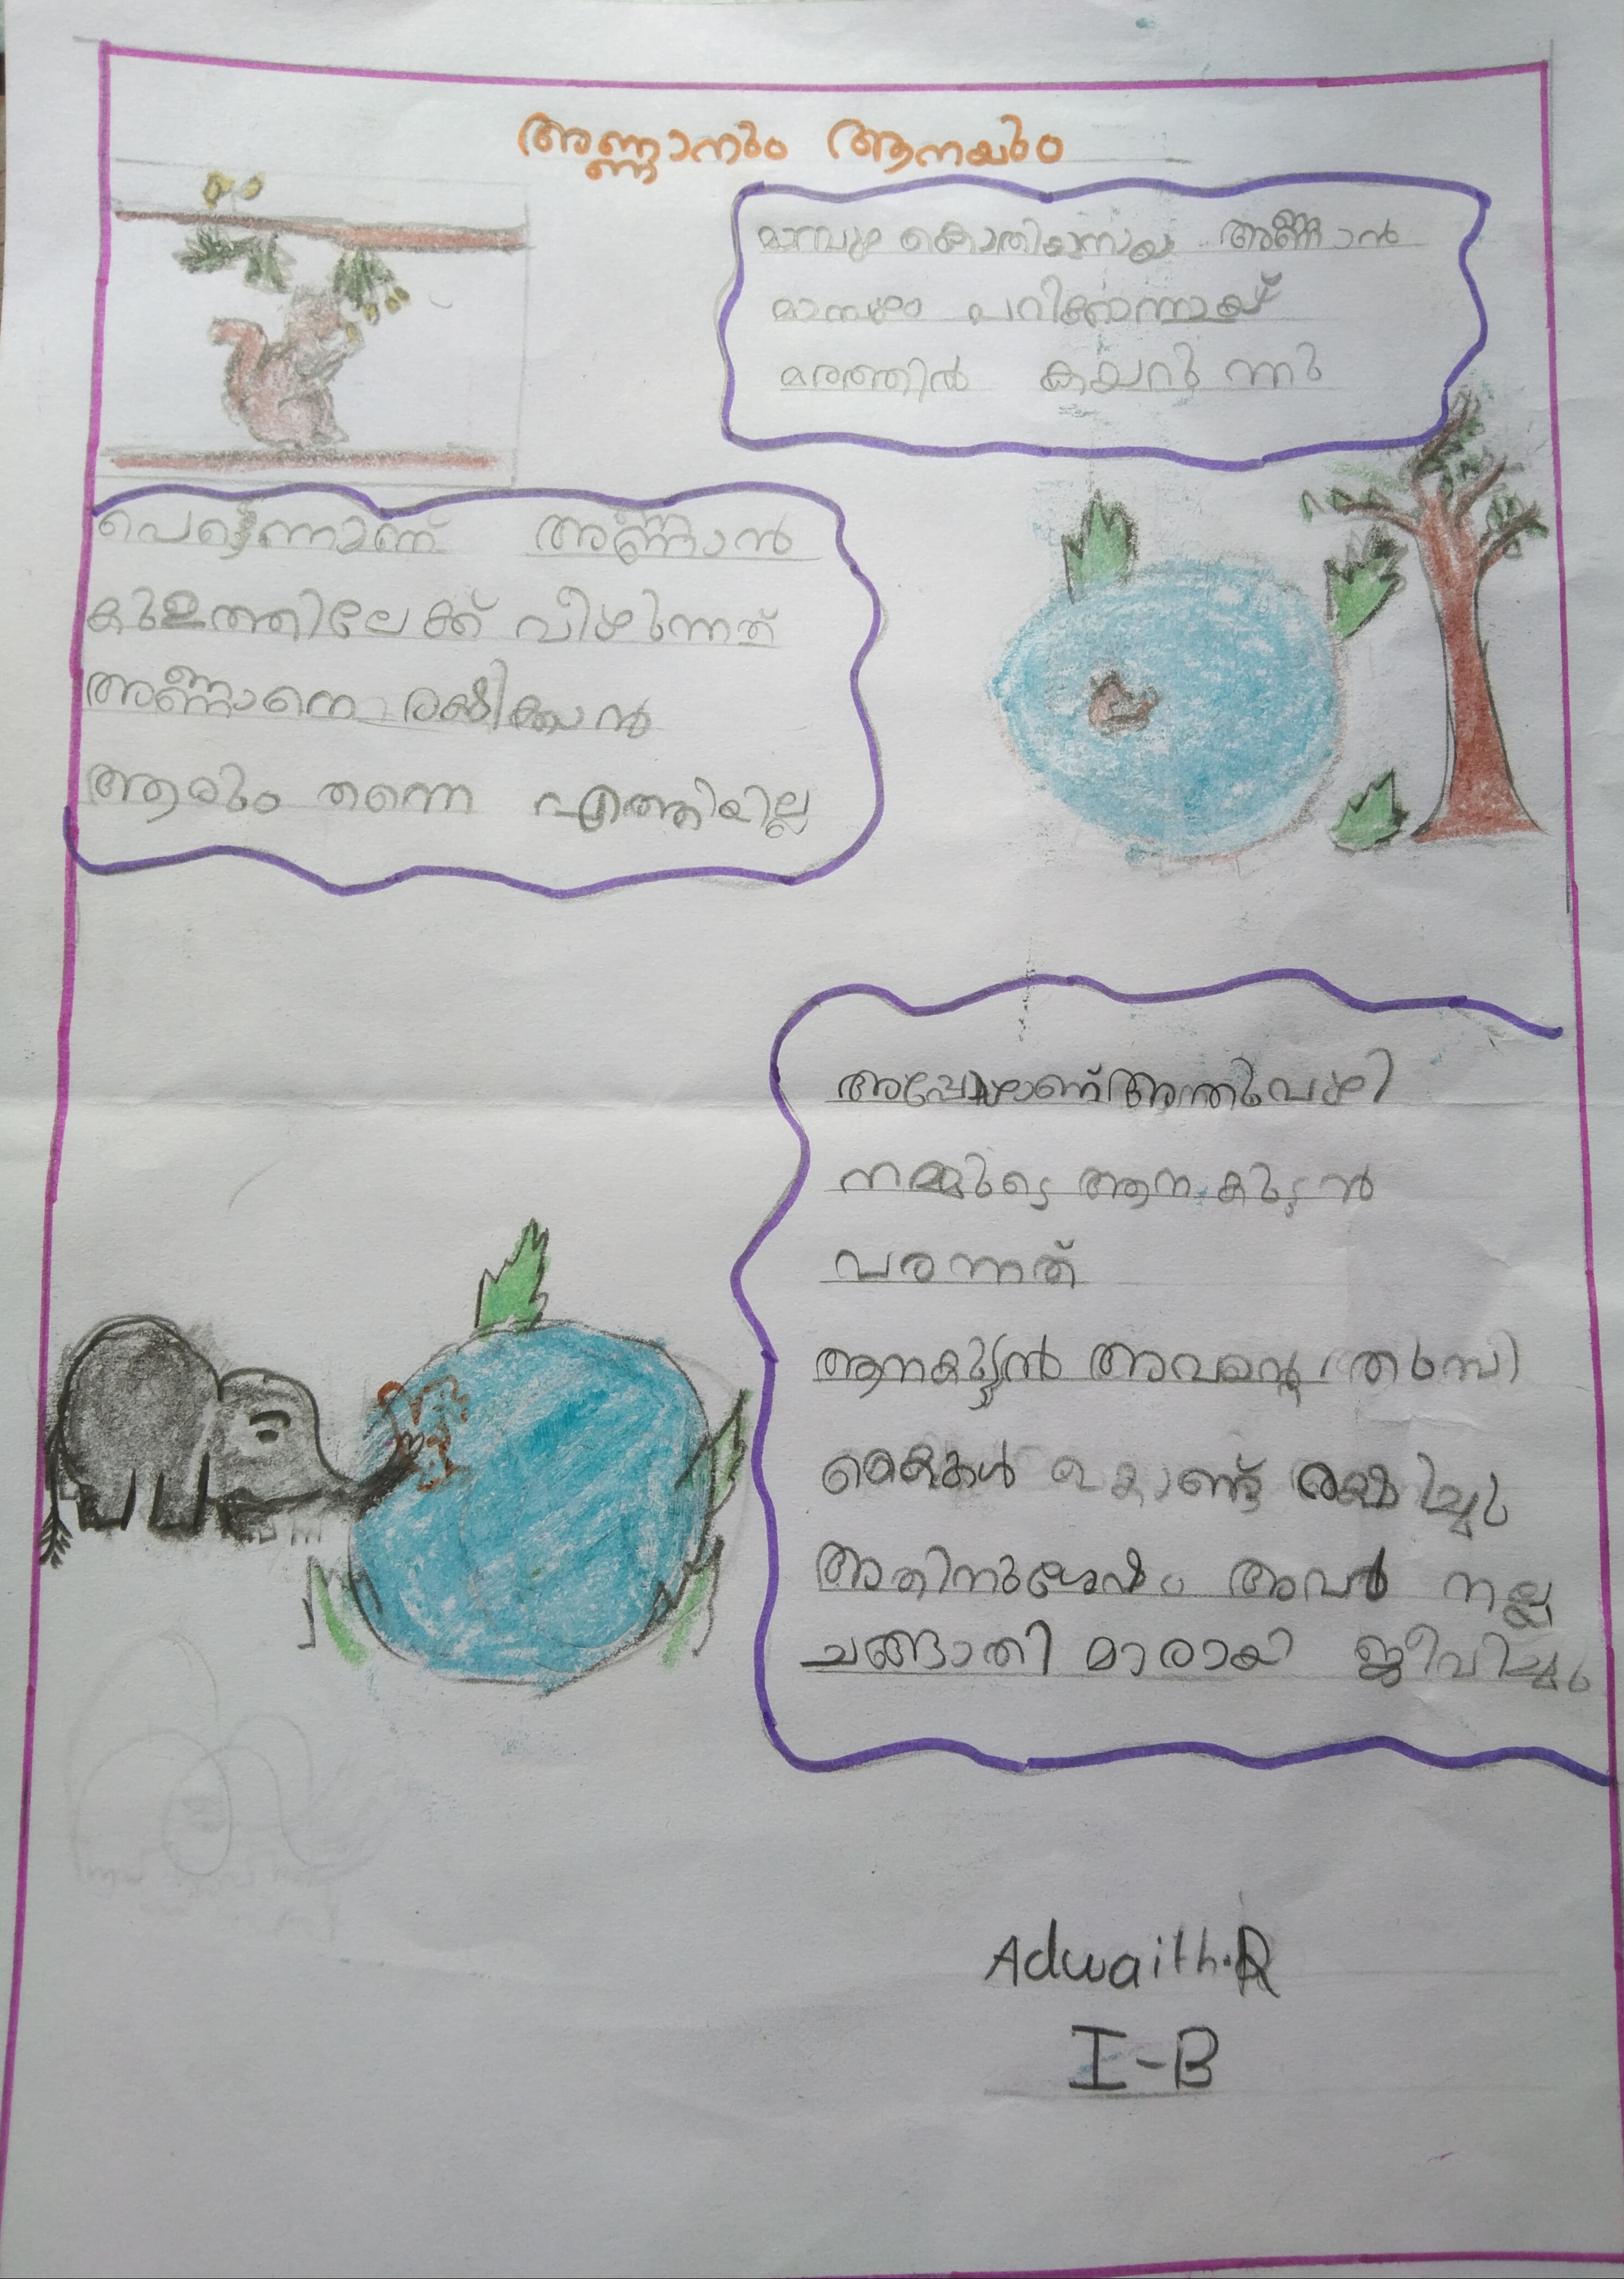 അണ്ണാനും ആനയും
മാമ്പഴ കൊതിയനായ അണ്ണാൻ
മാമ്പഴം പറിക്കാനായ്
മരത്തിൽ കയറുന്നു
പെട്ടെന്നാണ് അണ്ണാൻ
കുളത്തിലേക്ക് വീഴുന്നത്
അണ്ണാനെ രക്ഷിക്കാൻ
ആരും തന്നെ എത്തിയില്ല
അപ്പോഴാണ് അതുവഴി
നമ്മുടെ ആനകുട്ടൻ
വരുന്നത്
ആനകുട്ടൻ അവന്റെ തുമ്പി
കൈകൾ കൊണ്ട് രക്ഷിച്ചു
അതിനുശേഷം അവർ നല്ല
ചങ്ങാതി മാരായി ജീവിച്ചു
Adwaith.R
I-B